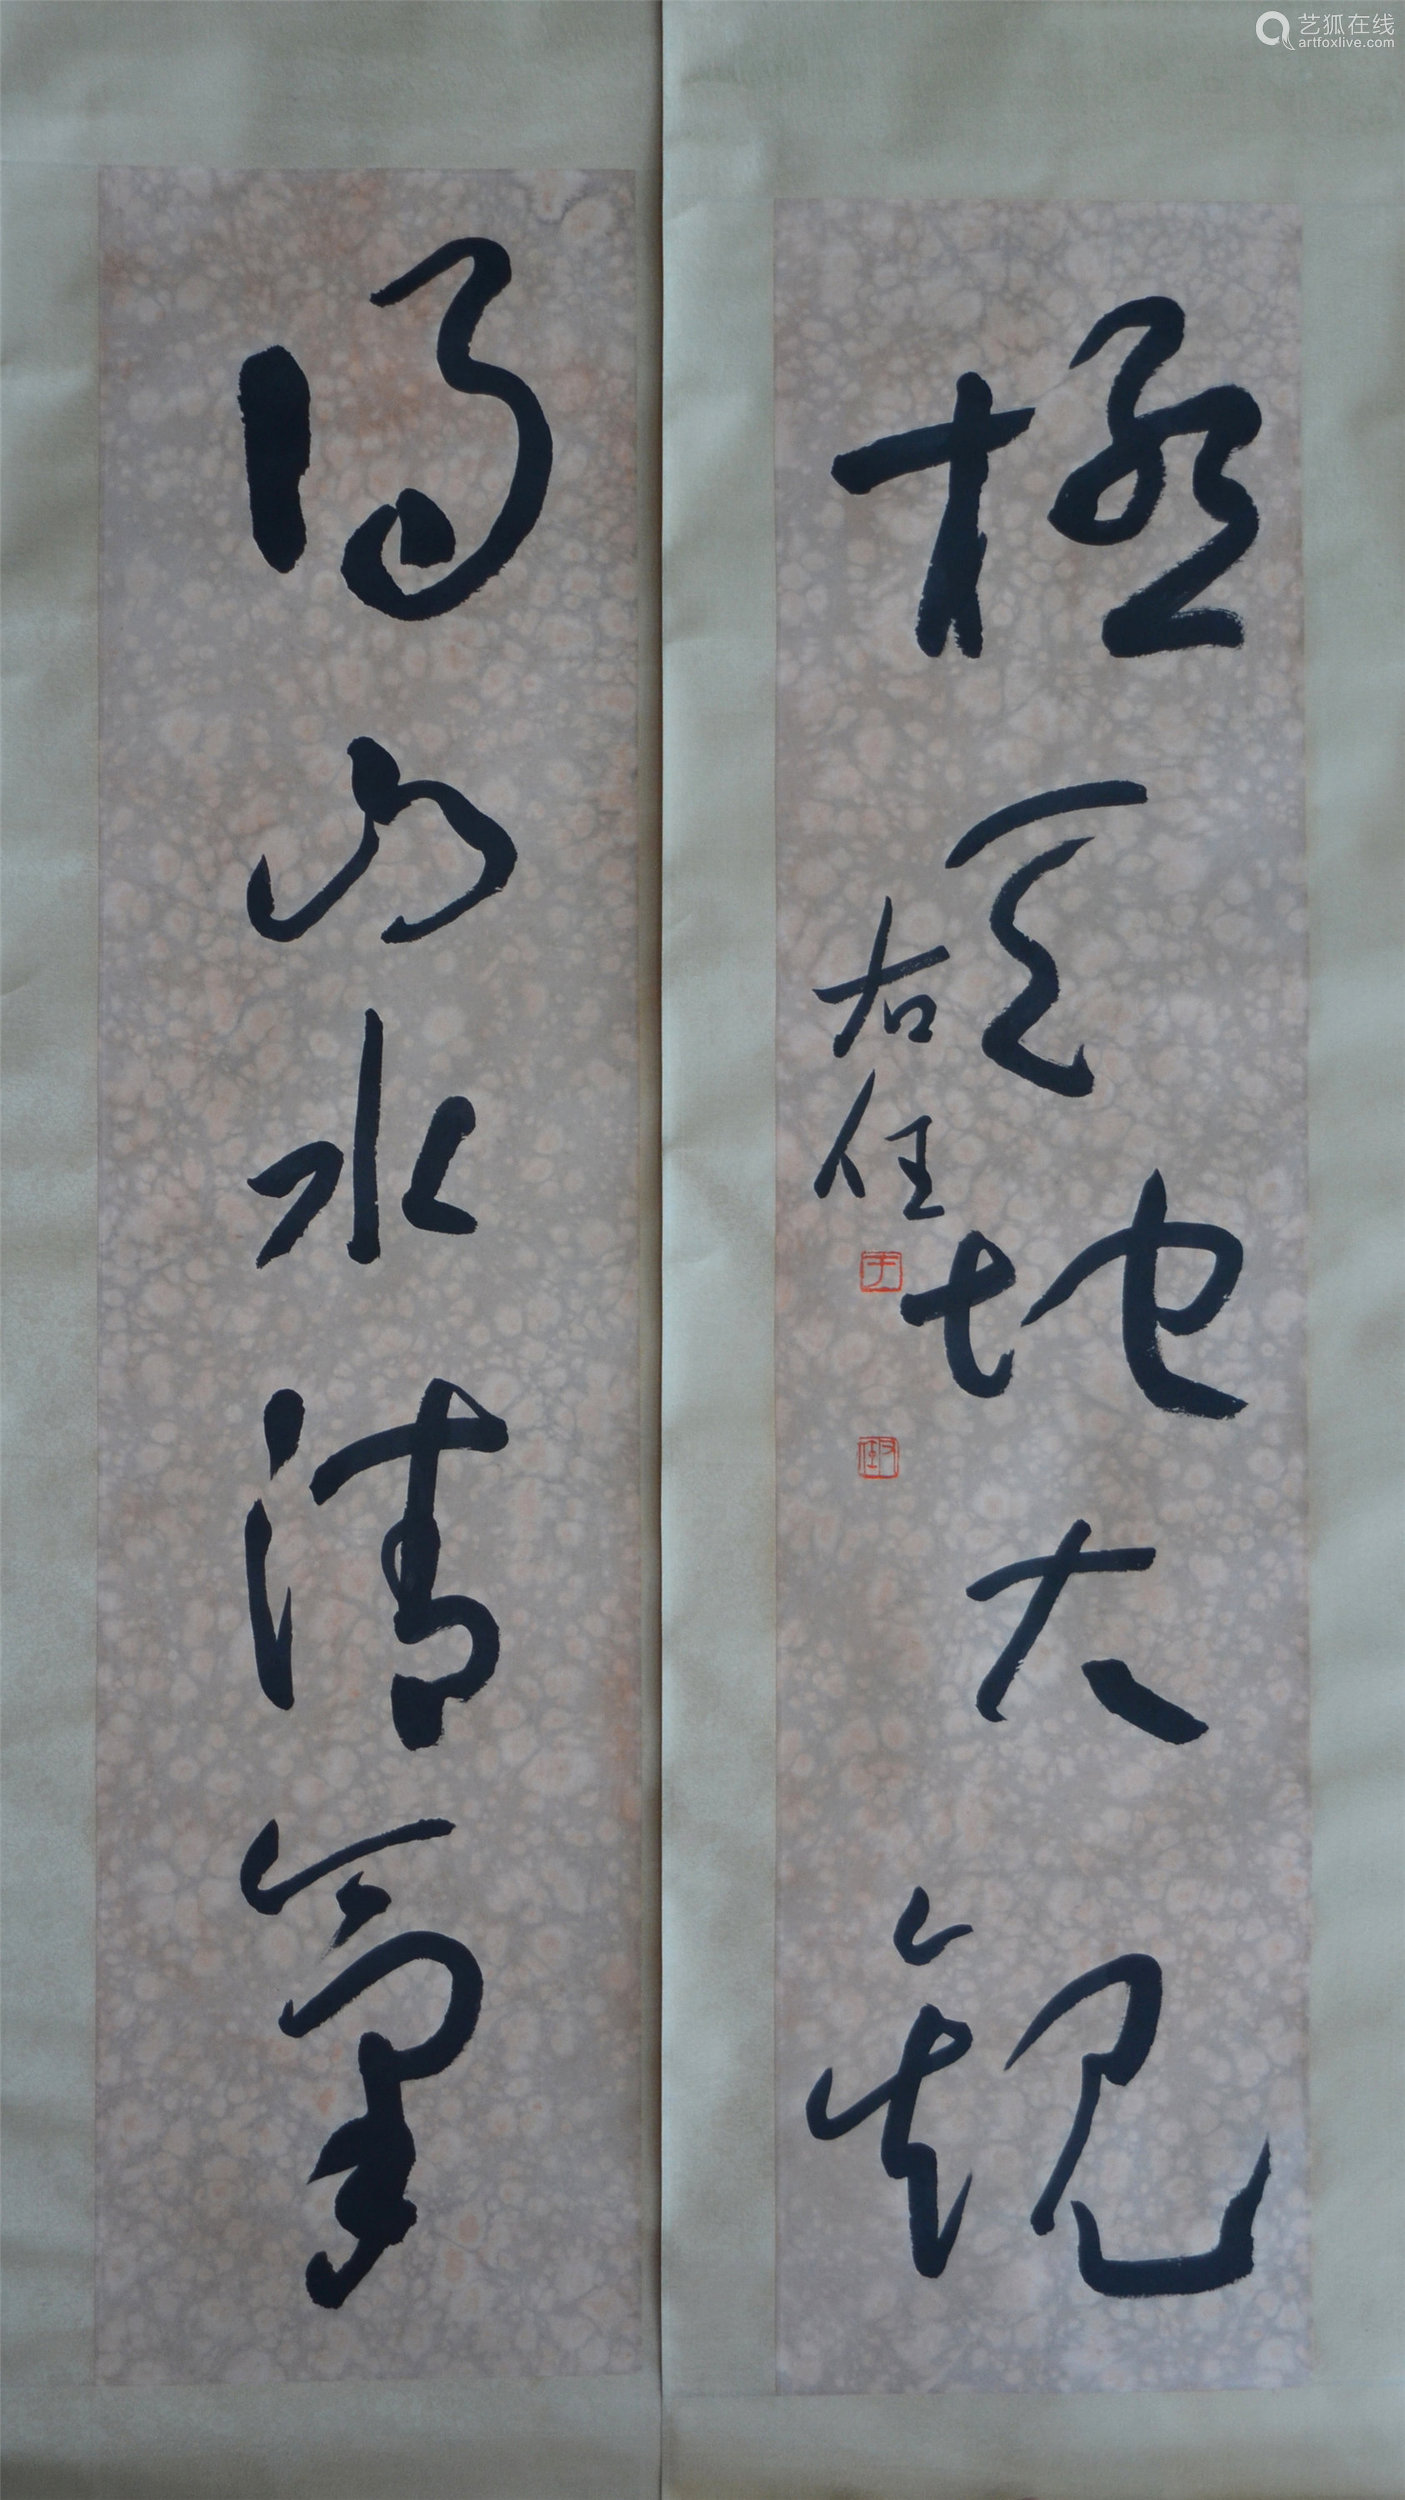 艺狐在线
artfoxlive.com
得山水清氣
極天地大觀
右任
于
右任